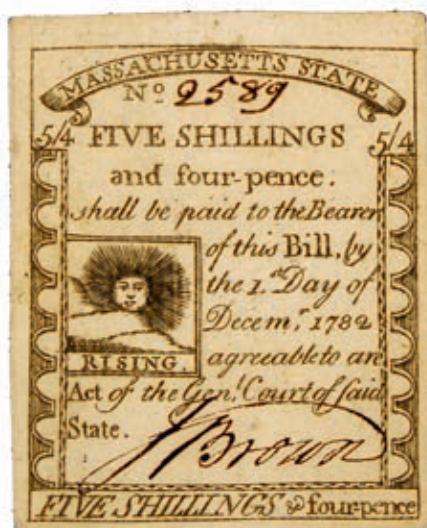 MASSACHUSETTS STATE
No 2589
5/4 FIVE SHILLINGS 5/4
and four-pence.
shall be paid to the Bearer
of this Bill, by
the 1.st Day of
Decem.r 1782
RISING.
agreeable to an
Act of the Gen.l Court of said
State.
J Brown
FIVE SHILLINGS & four-pence